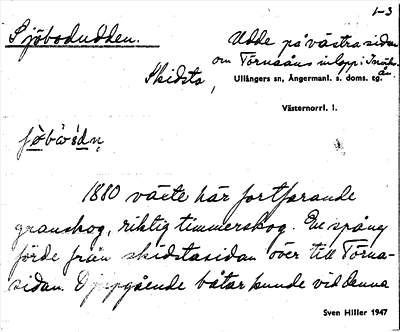 1-3
Sjöbodudden.
Udde på västra sidan
om Törnaåns inlopp i
Skidsta,
Ullångers sn, Ångermanl. s. doms. tg.
Västernorrl. l.
1880 växte här fortfarande
granskog, riktig timmerskog. En spång
förde från skidstasidan över till Törna-
sidan. Djupgående båtar kunde vid denna
Sven Hiller 1947